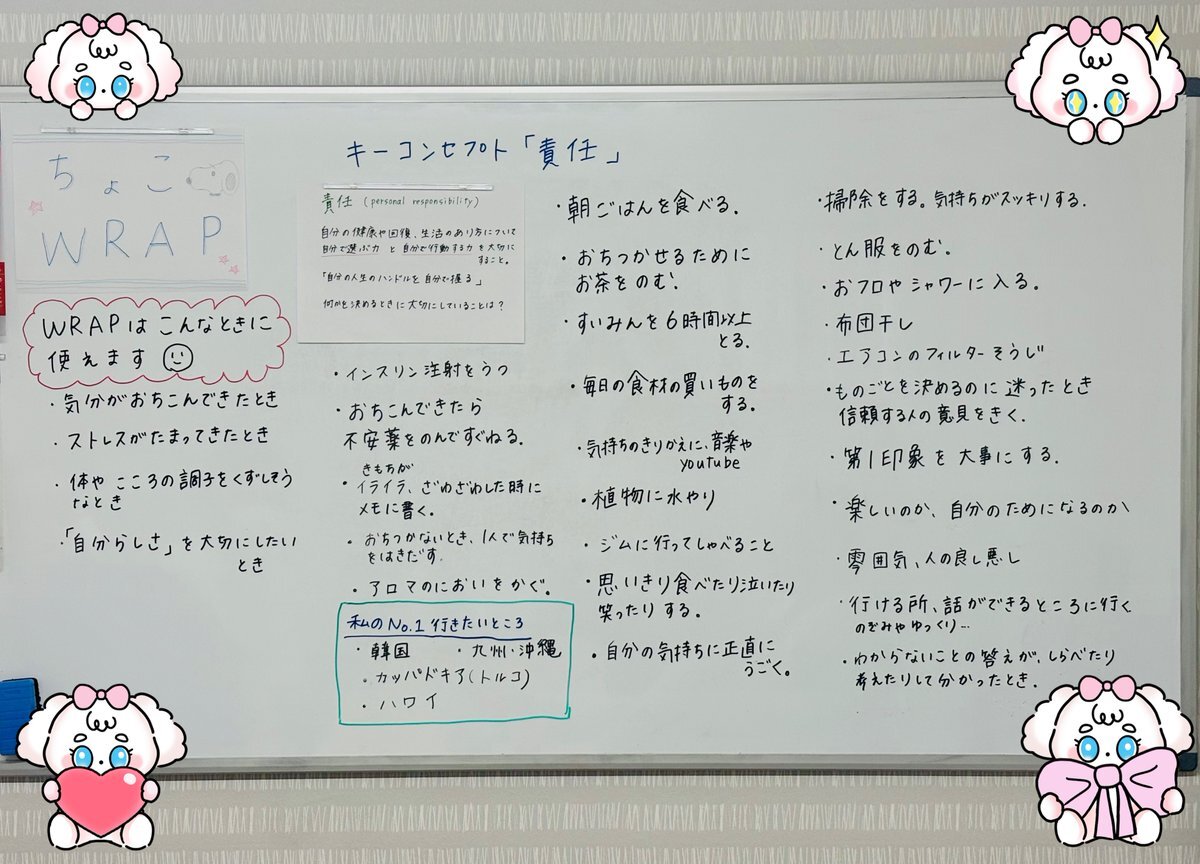 ちょこ
WRAP
WRAPはこんなときに
使えます
・気分がおちこんできたとき
・ストレスがたまってきたとき
・体やこころの調子をくずしそう
なとき
・「自分らしさ」を大切にしたい
とき
キーコンセプト「責任」
責任 (personal responsibility)
自分の健康や回復、生活のあり方について
自分で選ぶ力と自分で行動する力を大切に
すること。
「自分の人生のハンドルを自分で握る」
何かを決めるときに大切にしていることは?
・インスリン注射をうつ
・おちこんできたら
不安薬をのんですぐねる。
きもちが
・イライラ、ざわざわした時に
メモに書く。
・おちつかないとき、1人で気持ち
をはきだす.
・アロマのにおいをかぐ。
私のNo.1行きたいところ
・韓国 ・九州・沖縄
・カッパドキア(トルコ)
・ハワイ
・朝ごはんを食べる.
・おちつかせるために
お茶をのむ.
・すいみんを6時間以上
とる.
・毎日の食材の買いものを
する.
・気持ちのきりかえに、音楽や
youtube
・植物に水やり
・ジムに行ってしゃべること
・思いきり食べたり泣いたり
笑ったりする。
・自分の気持ちに正直に
うごく。
・掃除をする。気持ちがスッキリする.
・とん服をのむ.
・おフロやシャワーに入る.
・布団干し
・エアコンのフィルターそうじ
・ものごとを決めるのに迷ったとき
信頼する人の意見をきく.
・第1印象を大事にする.
・楽しいのか、自分のためになるのか
・雰囲気、人の良し悪し
・行ける所、話ができるところに行く
のぞみやゆっくり…
・わからないことの答えが、しらべたり
考えたりして分かったとき.